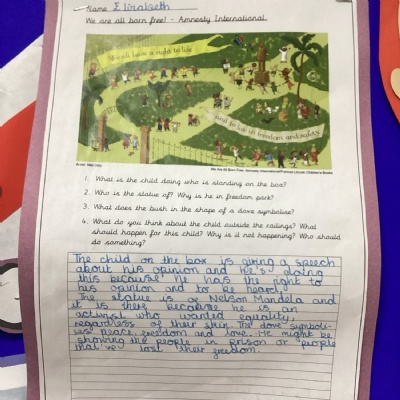 Name Elizabeth
We are all born free! - Amnesty International
We all have a right to life
and to live in freedom and safety.
We Are All Born Free, Amnesty International/Frances Lincoln Children's Books
1. What is the child doing who is standing on the box?
2. Who is the statue of? Why is he in freedom park?
3. What does the bush in the shape of a dove symbolise?
4. What do you think about the child outside the railings? What
should happen for this child? Why is it not happening? Who should
do something?
The child on the box is giving a speech
about his opinion and he's doing
this because he has the right to
his opinion and to be heard.
The statue is of Nelson Mandela and
it is there because he is an
activist who wanted equality,
regardless of their skin. The dove symboli-
ses peace, freedom and love. He might be
showing the people in prison or people
that've lost their freedom.